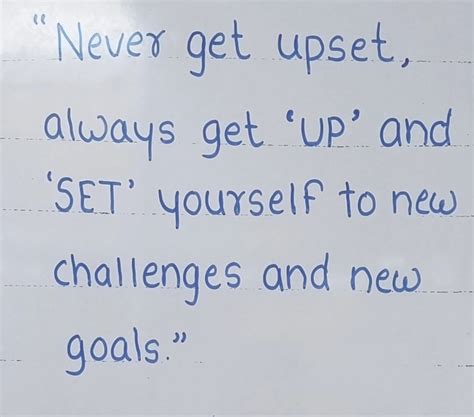 “Never get upset,
always get ‘UP’ and
‘SET’ yourself to new
challenges and new
goals.”